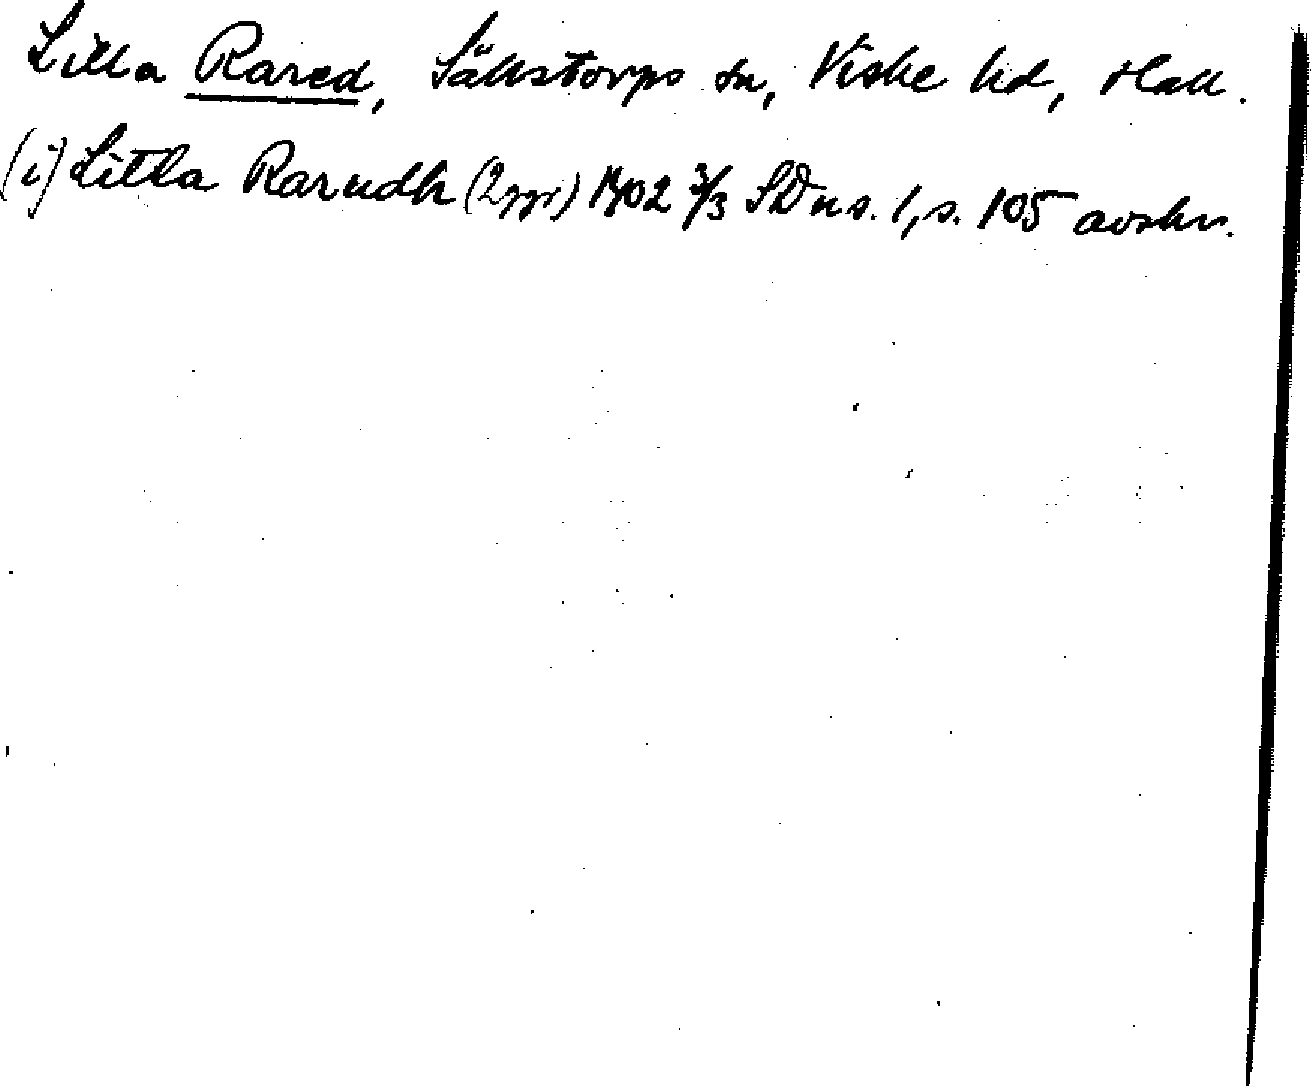 Lilla Rared, Sällstorps sn, Viske hd, Hall.
(i) Litla Rarudh (2 ggr) 1402 3/3 SDns. 1, s. 105 avskr.